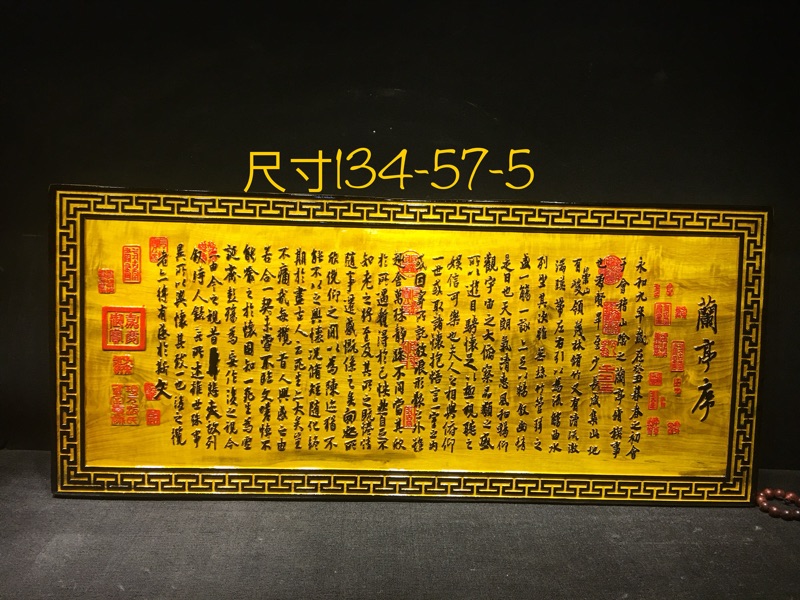 尺寸134-57-5
蘭亭序
永和九年歲在癸丑暮春之初會
于會稽山陰之蘭亭脩稧事
也羣賢畢至少長咸集此地
有崇山峻領茂林脩竹又有清流激
湍暎帶左右引以為流觴曲水
列坐其次雖無絲竹管弦之
盛一觴一詠亦足以暢敘幽情
是日也天朗氣清惠風和暢仰
觀宇宙之大俯察品類之盛
所以遊目騁懷足以極視聽之
娛信可樂也夫人之相與俯仰
一世或取諸懷抱悟言一室之內
或因寄所託放浪形骸之外雖
趣舍萬殊靜躁不同當其欣
於所遇暫得於己怏然自足不
知老之將至及其所之既惓情
隨事遷感慨係之矣向之所
欣俛仰之間以為陳迹猶不
能不以之興懷況脩短隨化終
期於盡古人云死生亦大矣豈
不痛哉每攬昔人興感之由
若合一契未嘗不臨文嗟悼不
能喻之於懷固知一死生為虛
誕齊彭殤為妄作後之視今
亦由今之視昔悲夫故列
敘時人錄其所述雖世殊事
異所以興懷其致一也後之攬
者亦將有感於斯文